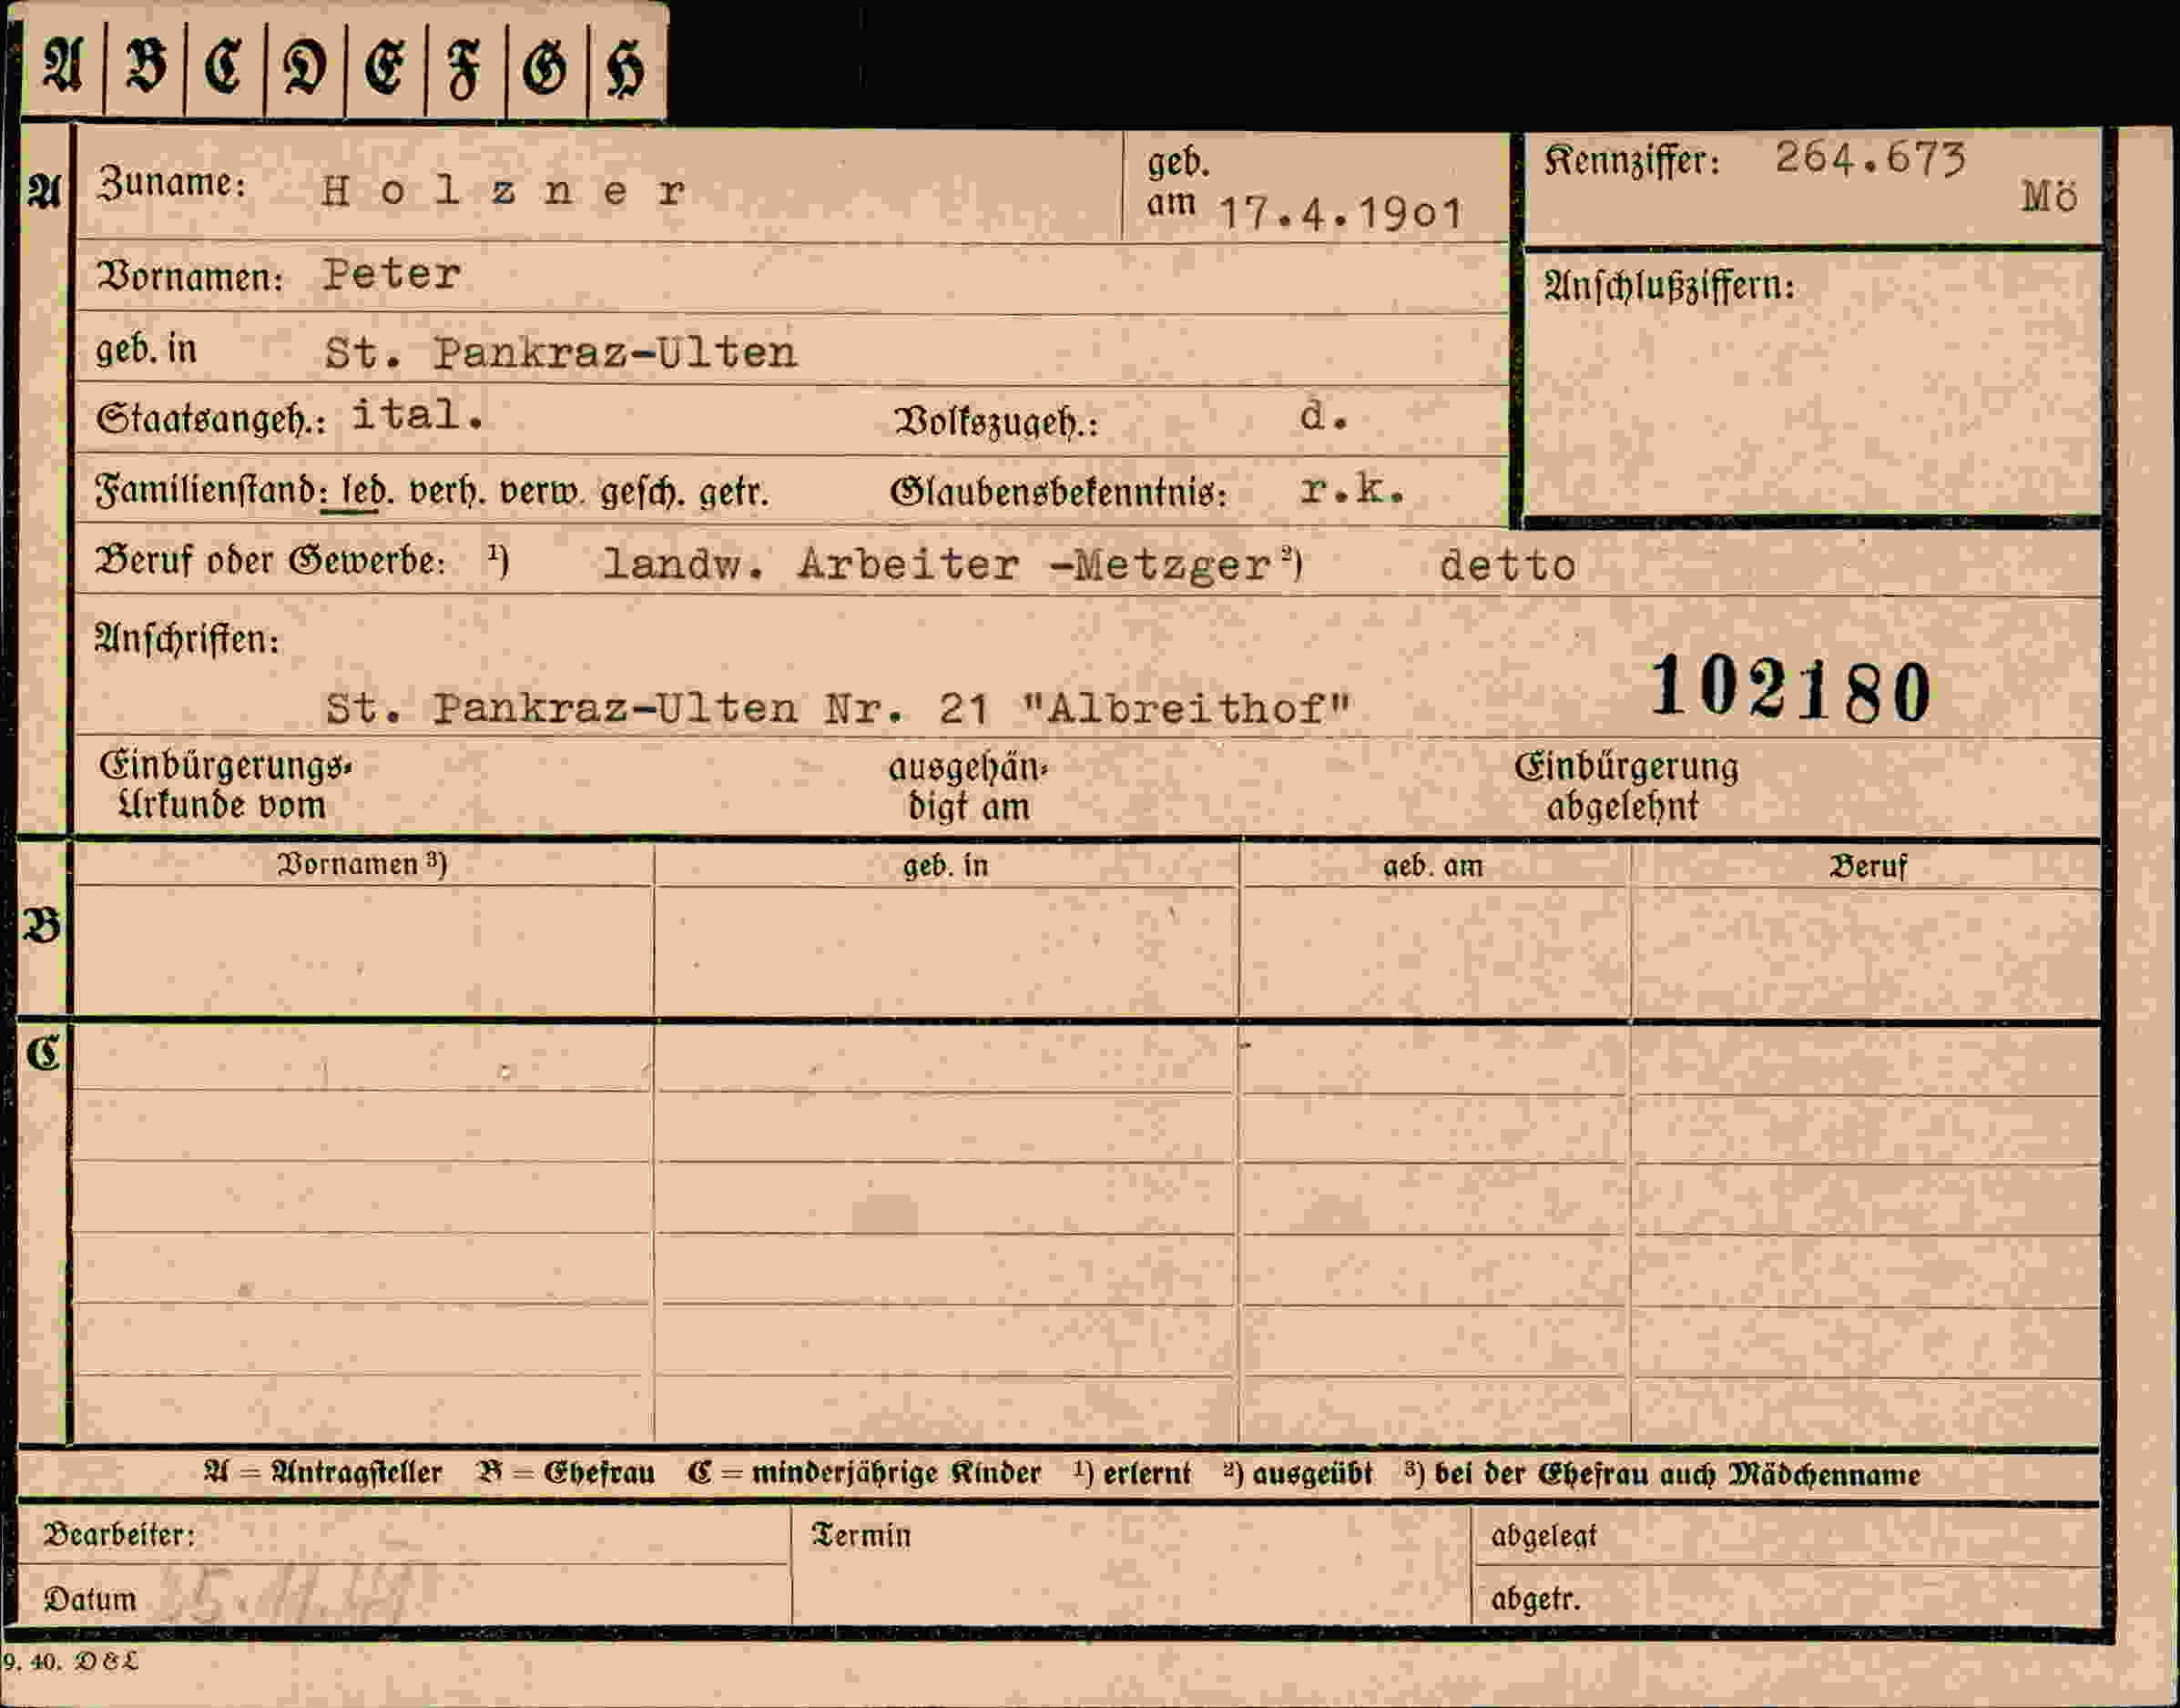 A B C D E F G H
A Zuname: Holzner geb. am 17.4.1901 Kennziffer: 264.673 Mö
Vornamen: Peter Anschlußziffern:
geb. in St. Pankraz-Ulten
Staatsangeh.: ital. Volkszugeh.: d.
Familienstand: led. verh. verw. gesch. getr. Glaubensbekenntnis: r.k.
Beruf oder Gewerbe: ¹) landw. Arbeiter -Metzger ²) detto
Anschriften:
St. Pankraz-Ulten Nr. 21 "Albreithof" 102180
Einbürgerungs-Urkunde vom ausgehändigt am Einbürgerung abgelehnt
Vornamen ³) geb. in geb. am Beruf
B
C
A = Antragsteller B = Ehefrau C = minderjährige Kinder ¹) erlernt ²) ausgeübt ³) bei der Ehefrau auch Mädchenname
Bearbeiter: Termin abgelegt
Datum abgetr.
9. 40. D & L